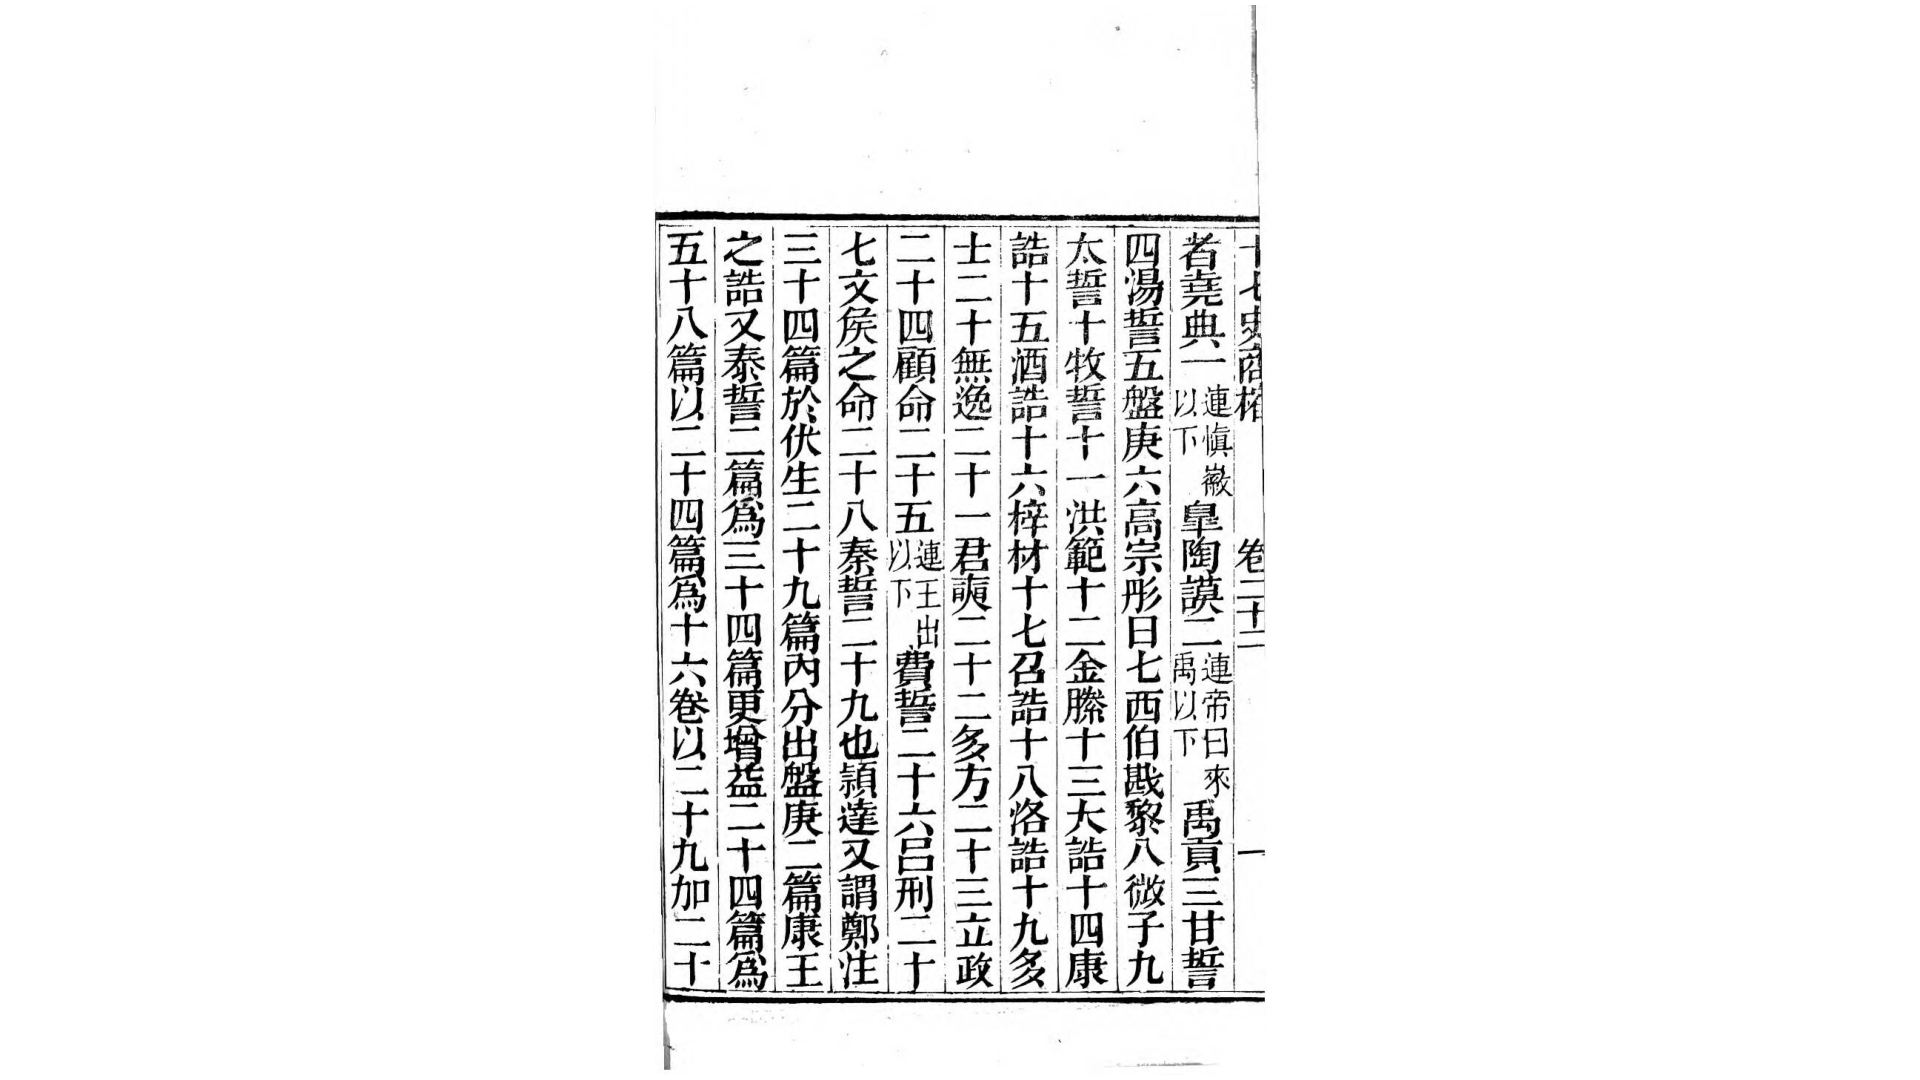 十七史商榷 卷二十二 一
者堯典一連愼徽以下皐陶謨二連帝曰來禹以下禹貢三甘誓
四湯誓五盤庚六高宗肜日七西伯戡黎八微子九
太誓十牧誓十一洪範十二金縢十三大誥十四康
誥十五酒誥十六梓材十七召誥十八洛誥十九多
士二十無逸二十一君奭二十二多方二十三立政
二十四顧命二十五連王出以下費誓二十六呂刑二十
七文侯之命二十八秦誓二十九也穎達又謂鄭注
三十四篇於伏生二十九篇內分出盤庚二篇康王
之誥又泰誓二篇爲三十四篇更增益二十四篇爲
五十八篇以二十四篇爲十六卷以二十九加二十